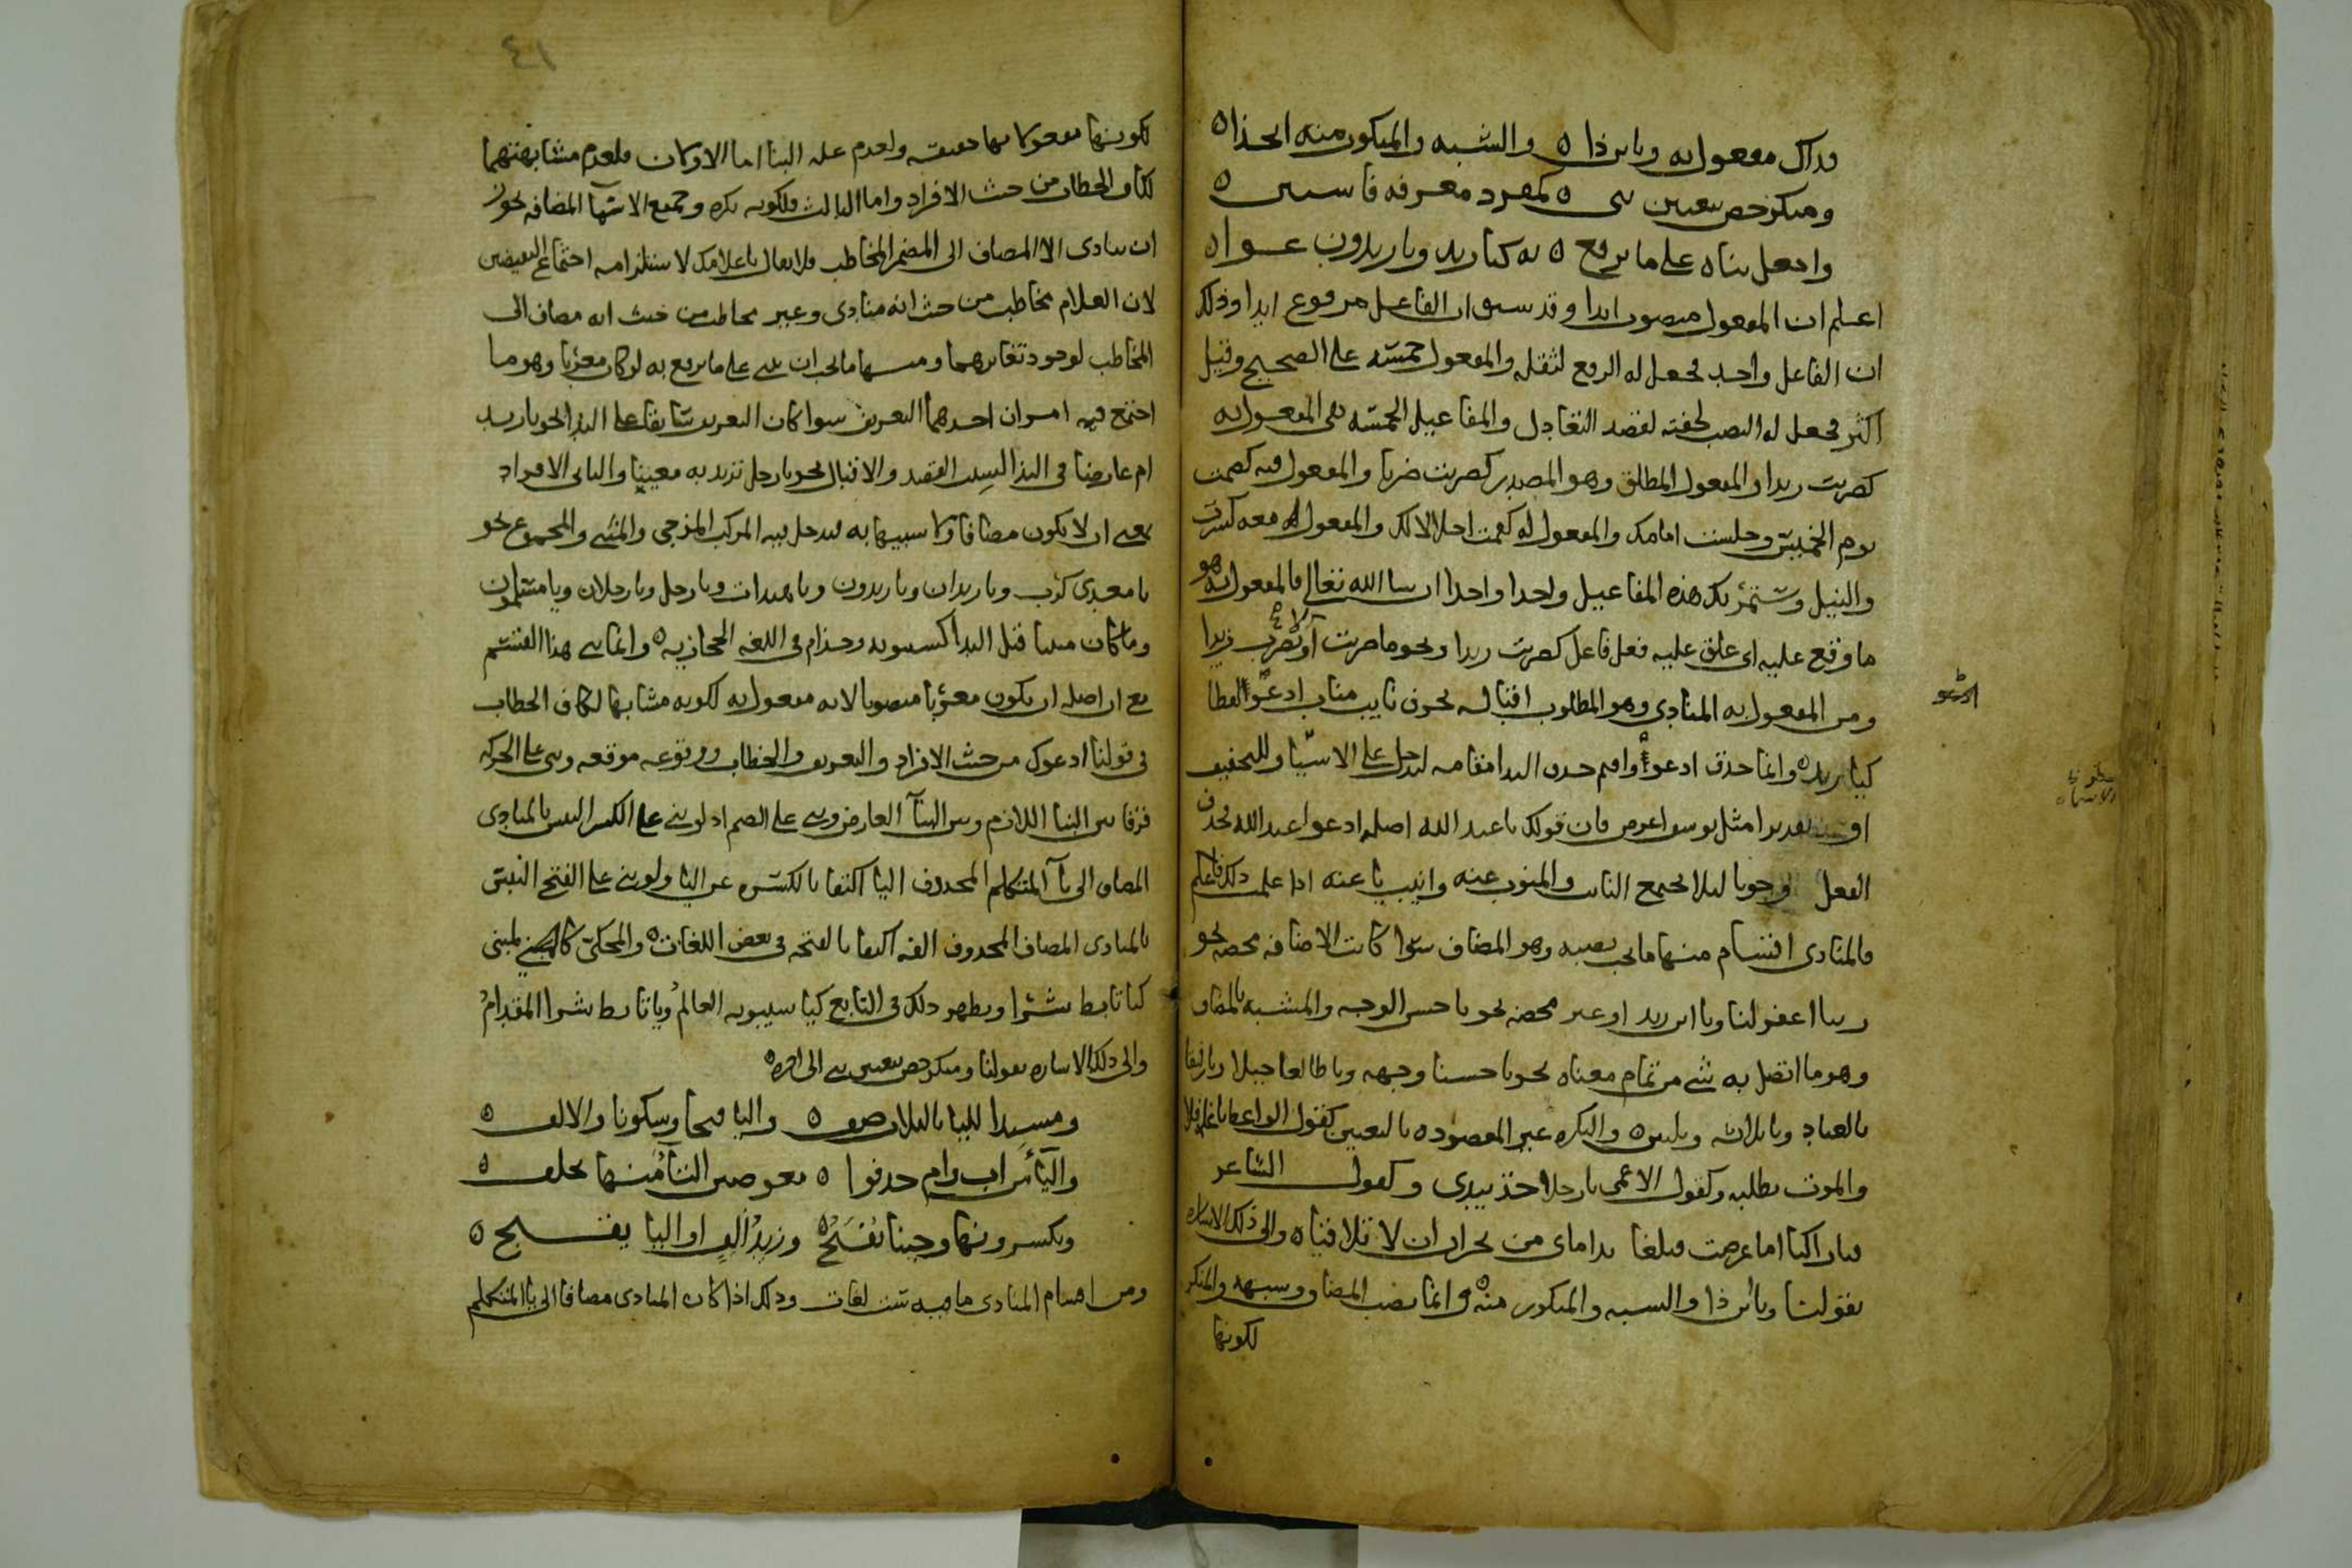 فذاك مفعول به وباين ذا ه والشبه والمنكور منه الحذا ه
ومنكر خص بتعيين بني ه كمفرد معرفة فاستبن ه
واجعل بناه على ما يرفع ه به كيا زيد ويا زيدون عوا ه
اعلم ان المفعول منصوب ابدا وقد سبق ان الفاعل مرفوع ابدا وذلك
ان الفاعل واحد فجعل له الرفع لثقله والمفعول خمسة على الصحيح وقيل
اكثر فجعل له النصب لخفته لقصد التعادل والمفاعيل الخمسة هي المفعول به
كضربت زيدا والمفعول المطلق وهو المصدر كضربت ضربا والمفعول فيه كصمت
يوم الخميس وجلست امامك والمفعول له كقمت اجلالا لك والمفعول معه كسرت
والنيل وستمر بك هذه المفاعيل واحدا واحدا ان شا الله تعالى فالمفعول به هو
ما وقع عليه اى علق عليه فعل فاعل كضربت زيدا ونحو ما ضربت او لا تضرب زيدا
ومن المفعول به المنادى وهو المطلوب اقباله بحرف نايب مناب ادعوا لفظا
كيا زيد ه وانما حذف ادعوا واقيم حرف الندا مقامه ليدخل على الاسما وللتخفيف
او تقديرا مثل يوسف اعرض فان قولك يا عبد الله اصله ادعوا عبد الله فحذف
الفعل وجوبا ليلا يجمع النايب والمنوب عنه وانيب يا عنه اذا علمت ذلك فاعلم
فالمنادى اقسام منها ما يجب نصبه وهو المضاف سوا كانت الاضافة محضة نحو
ربنا اغفر لنا ويا ابن زيد او غير محضة نحو يا حسن الوجه والمشبه بالمضاف
وهو ما اتصل به شي من تمام معناه نحو يا حسنا وجهه ويا طالعا جبلا ويا رفيقا
بالعباد ويا ثلاثة وثلاثين ه والنكرة غير المقصوده بالتعيين كقول الواعظ يا غافلا
والموت يطلبه وكقول الاعمى يا رجلا خذ بيدى وكقول الشاعر
فيا راكبا اما عرضت فبلغا نداماى من نجران ان لا تلاقيا ه والى ذلك الاشارة
بقولنا وباين ذا والشبه والمنكور منه ه وانما نصب المضاف وشبهه والمنكر
لكونها
ادعو
٤١
لكونها مفعولا بها حقيقه ولعدم علة البنا اما الاولان فلعدم مشابهتهما
لكاف الخطاب من حيث الافراد واما الثالث فلكونه نكره وجميع الاسما المضافه يجوز
ان ينادى الا المضاف الى المضمر المخاطب فلا يقال يا غلامك لاستلزامه اجتماع النقيضين
لان الغلام مخاطب من حيث انه منادى وغير مخاطب من حيث انه مضاف الى
المخاطب لوجود تغايرهما ومنها ما يجب ان يبنى على ما يرفع به لو كان معربا وهو ما
اجتمع فيه امران احدهما التعريف سوا كان التعريف سابقا على الندا نحو يا زيد
ام عارضا في الندا بسبب القصد والاقبال نحو يا رجل تريد به معينا والثانى الافراد
بمعنى ان لا يكون مضافا ولا شبيها به فيدخل فيه المركب المزجى والمثنى والمجموع نحو
يا معدى كرب ويا زيدان ويا زيدون ويا هندات ويا رجل ويا رجلان ويا مسلمون
وما كان مبنيا قبل الندا كسيبويه وحذام في اللغه الحجازيه ه وانما بنى هذا القسم
مع ان اصله ان يكون معربا منصوبا لانه مفعول به لكونه مشابها لكاف الخطاب
فى قولنا ادعوك من حيث الافراد والتعريف والخطاب ووقوعه موقعه وبنى على الحركة
فرقا بين البنا اللازم وبين البنا العارض وبنى على الضم اذ لو بني على الكسر التبس بالمنادى
المضاف الى يا المتكلم المحذوف اليا اكتفا بالكسره عن اليا ولو بني على الفتح التبس
بالمنادى المضاف المحذوف الفه اكتفا بالفتحه في بعض اللغات ه والمحكى كالمبني
كيا تابط شرا ويظهر ذلك فى التابع كيا سيبويه العالم ويا تابط شرا المقدام
والى ذلك الاشاره بقولنا ومنكر خص بتعيين بنى الى اخره ه
واليا فتحا وسكونا والالف ه
ويكسرونها وحينا تفتح ه وزيد الف او اليا يفتح ه
ومن اقسام المنادى ما فيه ست لغات وذلك اذا كان المنادى مضافا الى يا المتكلم